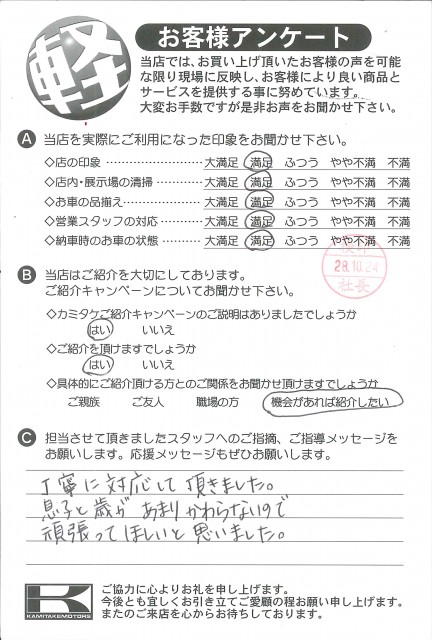 軽
お客様アンケート
当店では、お買い上げ頂いたお客様の声を可能
な限り現場に反映し、お客様により良い商品と
サービスを提供する事に努めています。
大変お手数ですが是非お声をお聞かせ下さい。
A 当店を実際にご利用になった印象をお聞かせ下さい。
◇店の印象 ………………… 大満足 満足 ふつう やや不満 不満
◇店内・展示場の清掃 ………… 大満足 満足 ふつう やや不満 不満
◇お車の品揃え ……………… 大満足 満足 ふつう やや不満 不満
◇営業スタッフの対応 ………… 大満足 満足 ふつう やや不満 不満
◇納車時のお車の状態 ………… 大満足 満足 ふつう やや不満 不満
28.10.24
社長
B 当店はご紹介を大切にしております。
ご紹介キャンペーンについてお聞かせ下さい。
◇カミタケご紹介キャンペーンのご説明はありましたでしょうか
はい いいえ
◇ご紹介を頂けますでしょうか
はい いいえ
◇具体的にご紹介頂ける方とのご関係をお聞かせ頂けますでしょうか
ご親族 ご友人 職場の方 機会があれば紹介したい
C 担当させて頂きましたスタッフへのご指摘、ご指導メッセージを
お願いします。応援メッセージもぜひお願いします。
丁寧に対応して頂きました。
息子と歳が あまりかわらないので
頑張ってほしいと思いました。
K
KAMITAKEMOTORS
ご協力に心よりお礼を申し上げます。
今後とも宜しくお引き立てご愛顧の程お願い申し上げます。
またのご来店を心からお待ちしております。